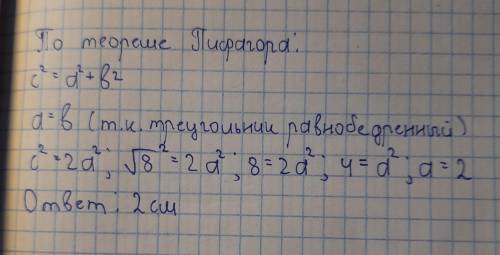 По теореме Пифагора:
c² = a² + b²
a = b (т.к. треугольник равнобедренный)
c² = 2a²; √8² = 2a²; 8 = 2a²; 4 = a²; a = 2
Ответ: 2 см